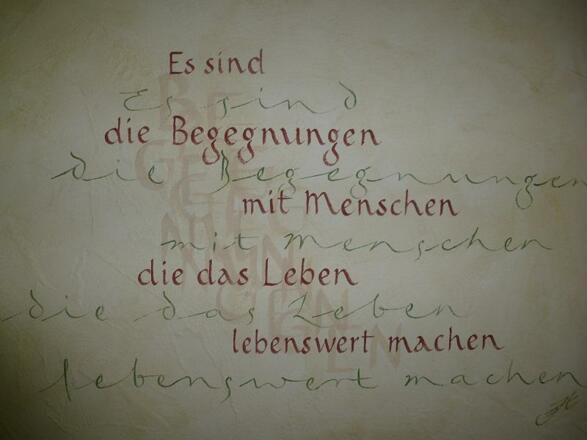 Es sind
Es sind
die Begegnungen
die Begegnungen
mit Menschen
mit Menschen
die das Leben
die das Leben
lebenswert machen
lebenswert machen